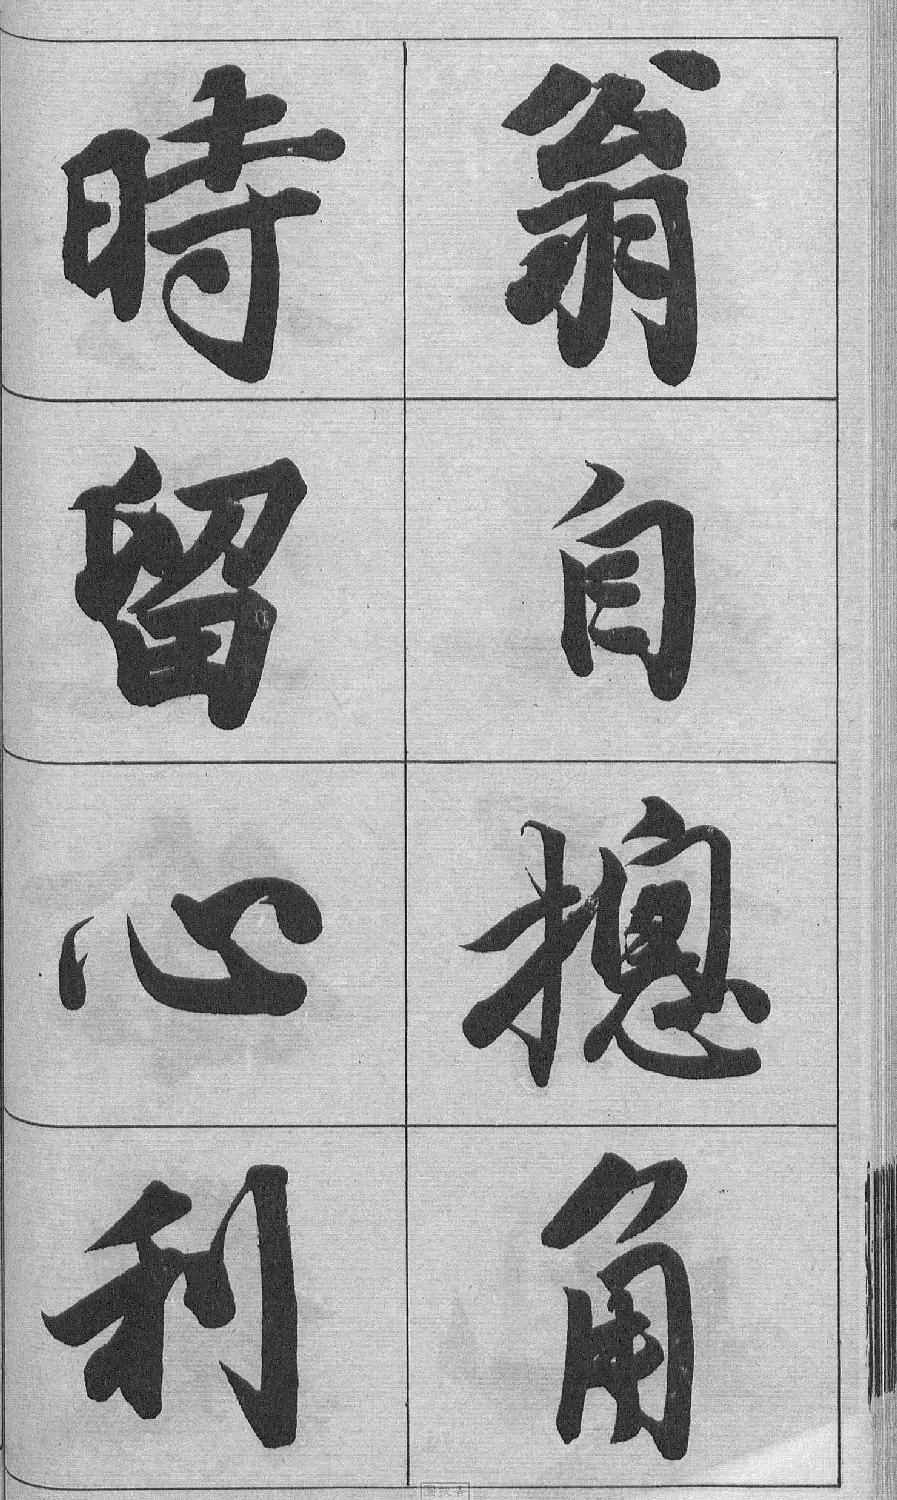 翁自摠角
時留心利